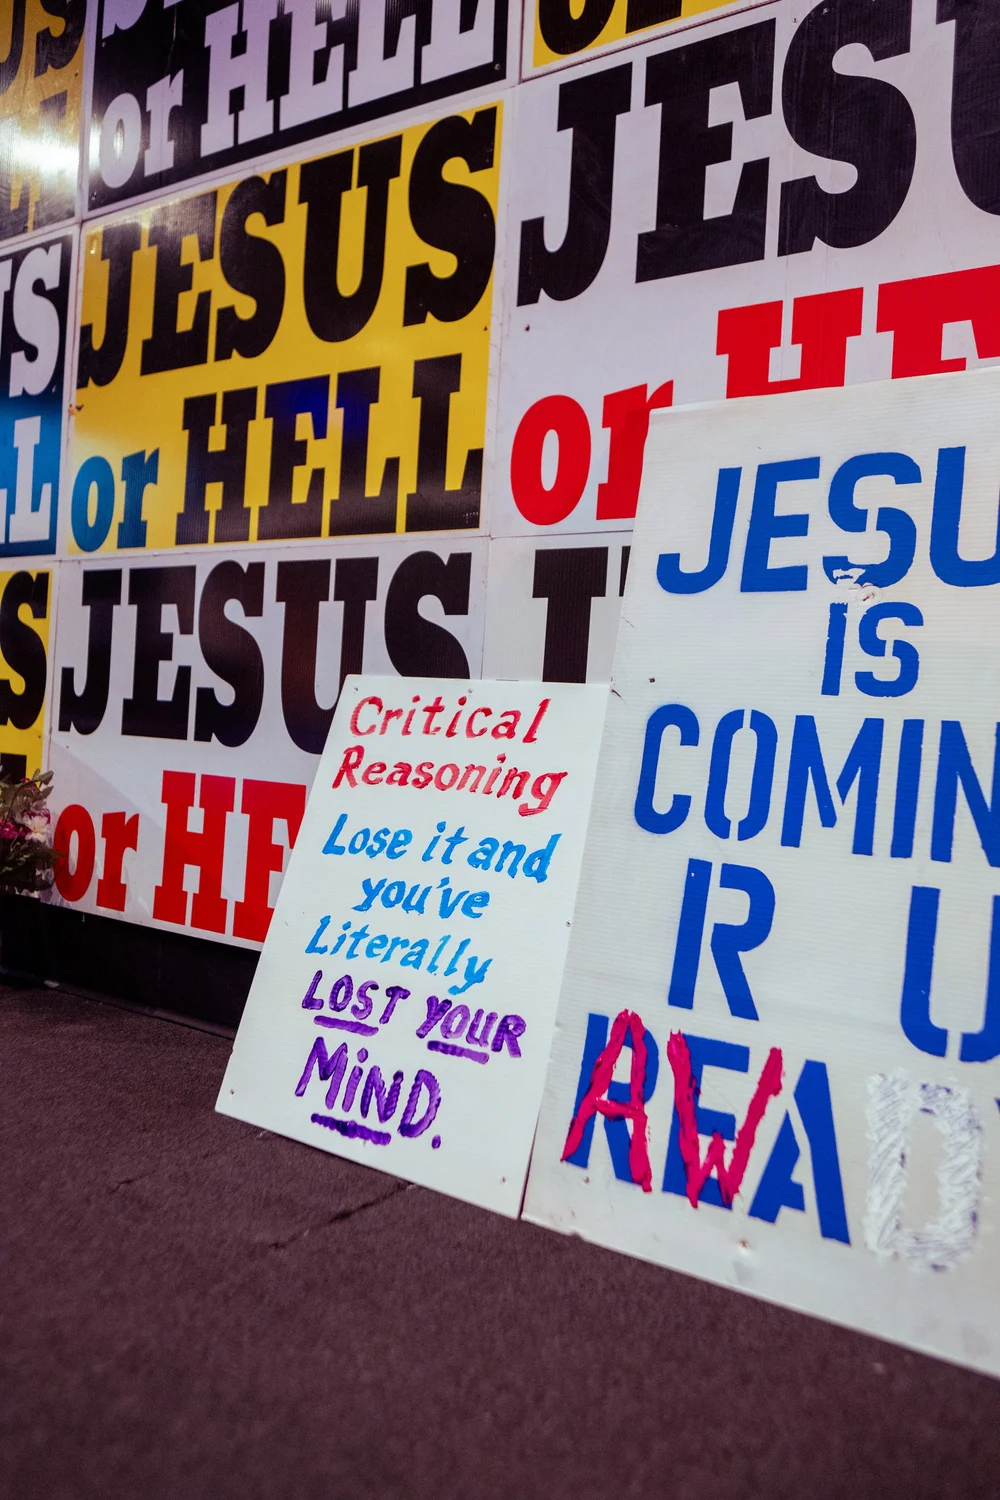 US
JESUS
or HELL
or
JESUS
or HELL
JESU
or HE
US
LL
JESUS
or HE
J
S
Critical
Reasoning
Lose it and
you've
Literally
LOST YOUR
MIND.
JESU
IS
COMIN
R U
REA
AW
D